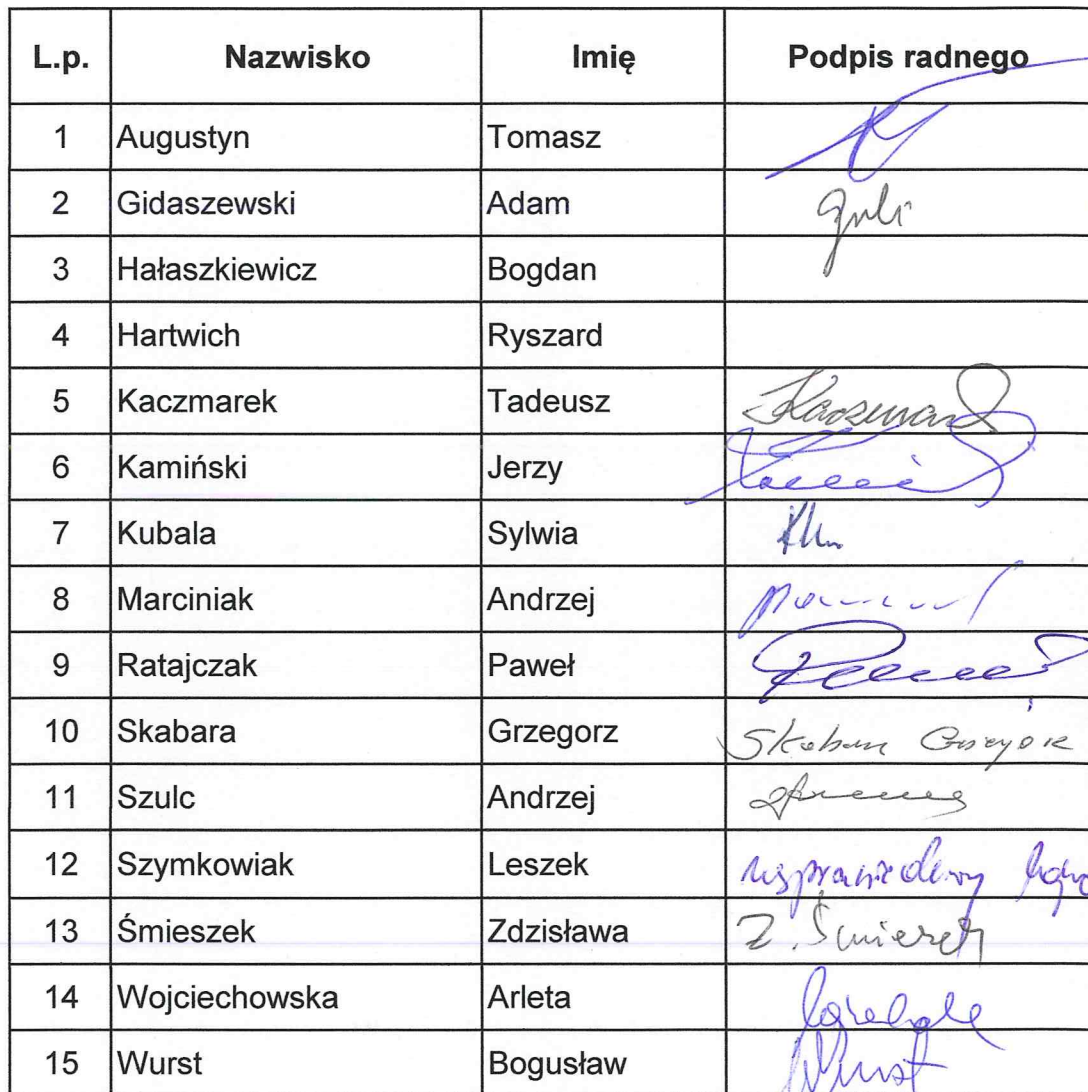 L.p. Nazwisko Imię Podpis radnego
1 Augustyn Tomasz
2 Gidaszewski Adam
3 Hałaszkiewicz Bogdan
4 Hartwich Ryszard
5 Kaczmarek Tadeusz
6 Kamiński Jerzy
7 Kubala Sylwia
8 Marciniak Andrzej
9 Ratajczak Paweł
10 Skabara Grzegorz
11 Szulc Andrzej
12 Szymkowiak Leszek
13 Śmieszek Zdzisława Z.
14 Wojciechowska Arleta
15 Wurst Bogusław Wurst